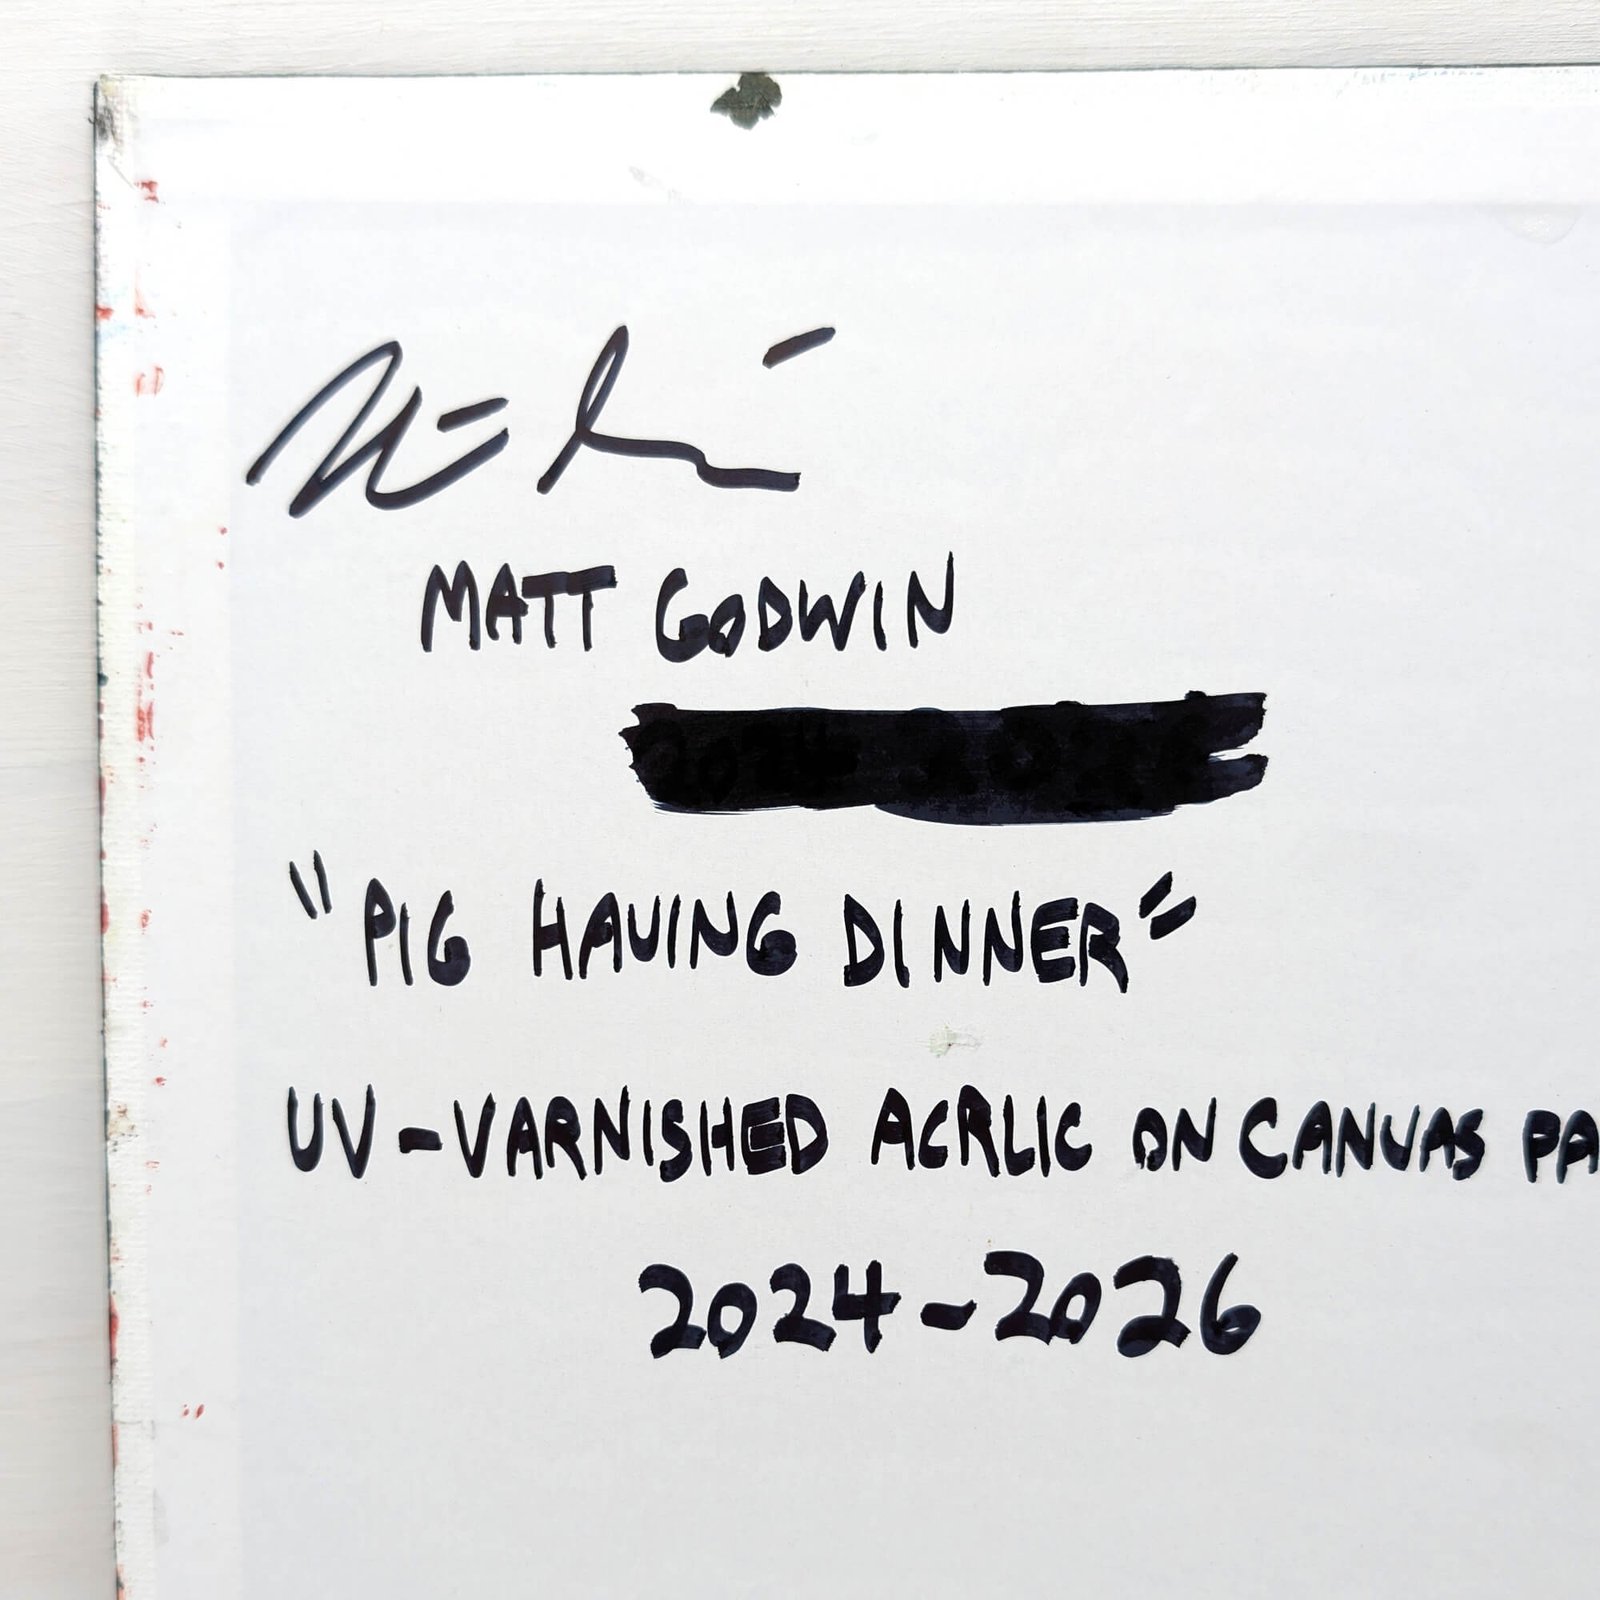 MATT GODWIN
"PIG HAVING DINNER"
UV-VARNISHED ACRLIC ON CANVAS PA
2024-2026